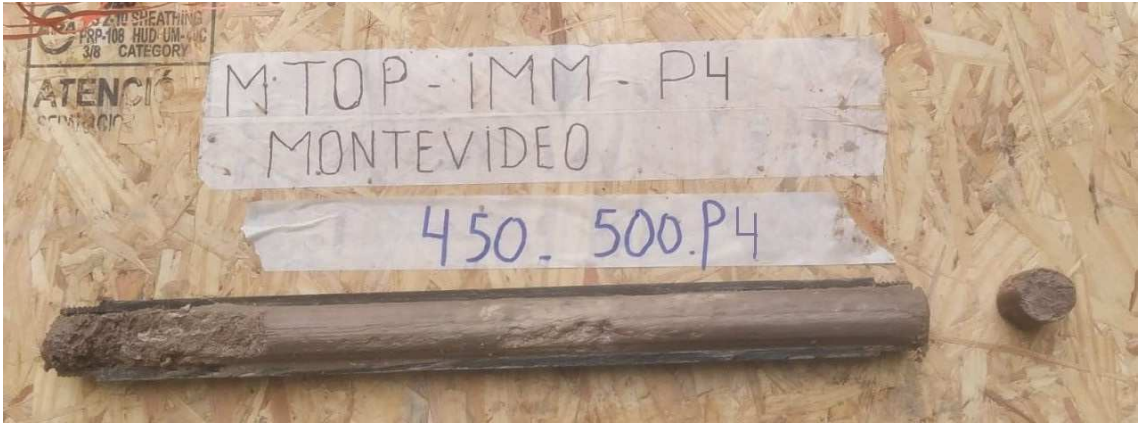 SHEATHING
PRP-108 HUD-UM-40C
3/8 CATEGORY
ATENCIÓ
M.TOP-iMM-P4
MONTEViDEO
450- 500.P4